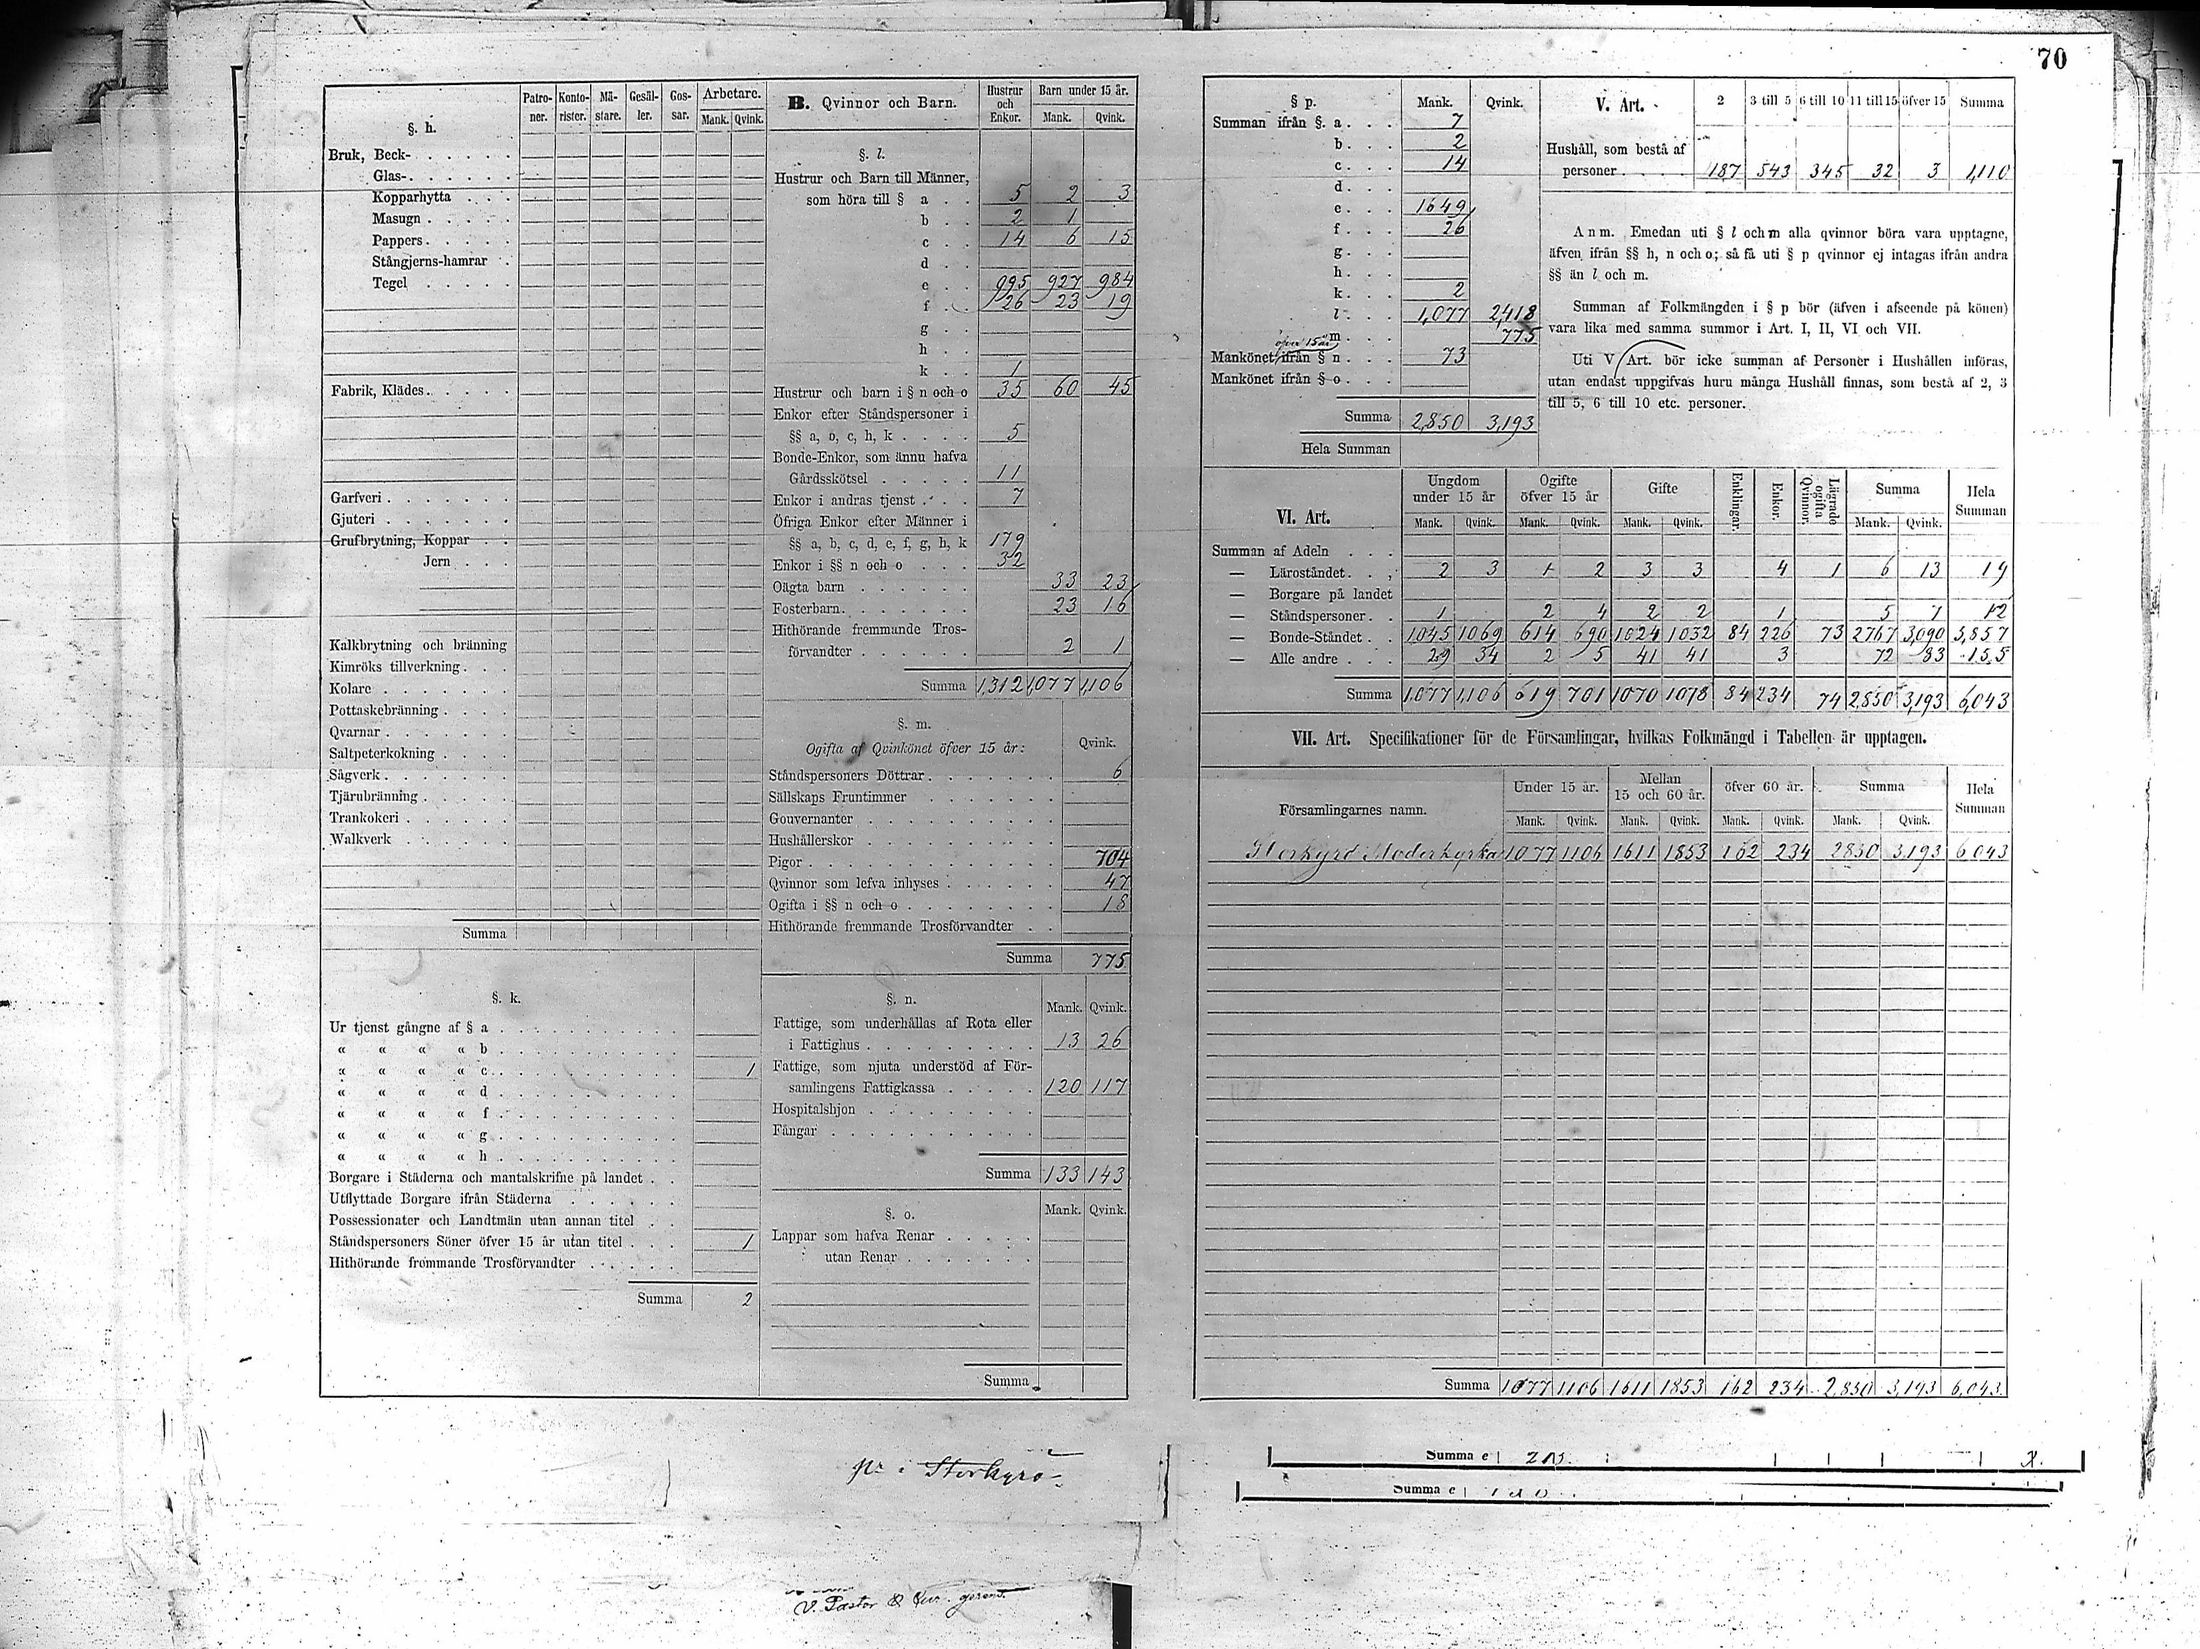 70
§. h.
Patroner. Kontorister. Mästare. Gesäller. Gossar. Arbetare. Mank. Qvink.
Bruk, Beck-
Glas-
Kopparhytta
Masugn
Pappers
Stångjerns-hamrar
Tegel
Fabrik, Klädes
Garfveri
Gjuteri
Grufbrytning, Koppar
Jern
Kalkbrytning och bränning
Kimröks tillverkning
Kolare
Pottaskebränning
Qvarnar
Saltpeterkokning
Sågverk
Tjärubränning
Trankokeri
Walkverk
Summa
§. k.
Ur tjenst gångne af § a
« « « « b
« « « « c 1
« « « « d
« « « « f
« « « « g
« « « « h
Borgare i Städerna och mantalskrifne på landet
Utflyttade Borgare ifrån Städerna
Possessionater och Landtmän utan annan titel
Ståndspersoners Söner öfver 15 år utan titel 1
Hithörande frommande Trosförvandter
Summa 2
B. Qvinnor och Barn. Hustrur och Enkor. Barn under 15 år. Mank. Qvink.
§. l.
Hustrur och Barn till Männer,
som höra till § a 5 2 3
b 2 1
c 14 6 15
d
e 995 927 984
f 26 23 19
g
h
k 1
Hustrur och barn i § n och o 35 60 45
Enkor efter Ståndspersoner i
§§ a, b, c, h, k 5
Bonde-Enkor, som ännu hafva
Gårdsskötsel 11
Enkor i andras tjenst 7
Öfriga Enkor efter Männer i
§§ a, b, c, d, e, f, g, h, k 179
Enkor i §§ n och o 32
Oägta barn 33 23
Fosterbarn 23 16
Hithörande fremmande Tros-
förvandter 2 1
Summa 1,312 1,077 1,106
§. m.
Ogifta af Qvinkönet öfver 15 år: Qvink.
Ståndspersoners Döttrar 6
Sällskaps Fruntimmer
Gouvernanter
Hushållerskor
Pigor 704
Qvinnor som lefva inhyses 47
Ogifta i §§ n och o 18
Hithörande fremmande Trosförvandter
Summa 775
§. n. Mank. Qvink.
Fattige, som underhållas af Rota eller
i Fattighus 13 26
Fattige, som njuta understöd af För-
samlingens Fattigkassa 120 117
Hospitalshjon
Fångar
Summa 133 143
§. o. Mank. Qvink.
Lappar som hafva Renar
utan Renar
Summa
§ p. Mank. Qvink.
Summan ifrån §. a 7
b 2
c 14
d
e 1649
f 26
g
h
k 2
l 1,077 2,418
m 775
öfver 15 år
Mankönet ifrån § n 73
Mankönet ifrån § o
Summa 2,850 3,193
Hela Summan
V. Art. 2 3 till 5 6 till 10 11 till 15 öfver 15 Summa
Hushåll, som bestå af
personer 187 543 345 32 3 1,110
Anm. Emedan uti § l och m alla qvinnor böra vara upptagne,
äfven ifrån §§ h, n och o; så få uti § p qvinnor ej intagas ifrån andra
§§ än l och m.
Summan af Folkmängden i § p bör (äfven i afseende på könen)
vara lika med samma summor i Art. I, II, VI och VII.
Uti V Art. bör icke summan af Personer i Hushållen införas,
utan endast uppgifvas huru många Hushåll finnas, som bestå af 2, 3
till 5, 6 till 10 etc. personer.
VI. Art. Ungdom under 15 år Ogifte öfver 15 år Gifte Enklingar. Enkor. Lägrade ogifta Qvinnor. Summa Hela Summan
Mank. Qvink. Mank. Qvink. Mank. Qvink. Mank. Qvink.
Summan af Adeln
— Läroståndet 2 3 1 2 3 3 4 1 6 13 19
— Borgare på landet
— Ståndspersoner 1 2 4 2 2 1 5 7 12
— Bonde-Ståndet 1045 1069 614 690 1024 1032 84 226 73 2767 3,090 5,857
— Alle andre 29 34 2 5 41 41 3 72 83 155
Summa 1,077 1,106 619 701 1070 1078 84 234 74 2,850 3,193 6,043
VII. Art. Specifikationer för de Församlingar, hvilkas Folkmängd i Tabellen är upptagen.
Församlingarnes namn. Under 15 år. Mellan 15 och 60 år. öfver 60 år. Summa Hela Summan
Mank. Qvink. Mank. Qvink. Mank. Qvink. Mank. Qvink.
Storkyrö Moderkyrka 1077 1106 1611 1853 162 234 2850 3,193 6043
Summa 1077 1106 1611 1853 162 234 2,850 3,193 6,043
Storkyrö
Summa e
Summa e
V. Pastor